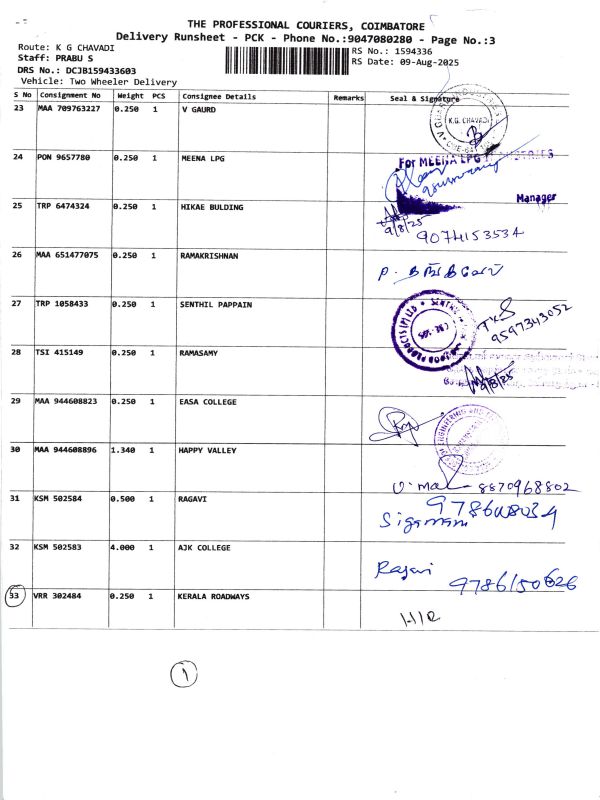 THE PROFESSIONAL COURIERS, COIMBATORE
Delivery Runsheet - PCK - Phone No.:9047080280 - Page No.:3
Route: K G CHAVADI
RS No.: 1594336
Staff: PRABU S
RS Date: 09-Aug-2025
DRS No.: DCJB159433603
Vehicle: Two Wheeler Delivery
S No Consignment No Weight PCS Consignee Details Remarks Seal & Signature
23 MAA 709763227 0.250 1 V GAURD
K.G. CHAVADI
24 PON 9657780 0.250 1 MEENA LPG
For MEENA LPG
Manager
25 TRP 6474324 0.250 1 HIKAE BULDING
9/8/25
9074153534
26 MAA 651477075 0.250 1 RAMAKRISHNAN
27 TRP 1058433 0.250 1 SENTHIL PAPPAIN
9597343052
28 TSI 415149 0.250 1 RAMASAMY
9/8/25
29 MAA 944608823 0.250 1 EASA COLLEGE
30 MAA 944608896 1.340 1 HAPPY VALLEY
8870968802
31 KSM 502584 0.500 1 RAGAVI
32 KSM 502583 4.000 1 AJK COLLEGE
Ragavi
33 VRR 302484 0.250 1 KERALA ROADWAYS
H/R
1